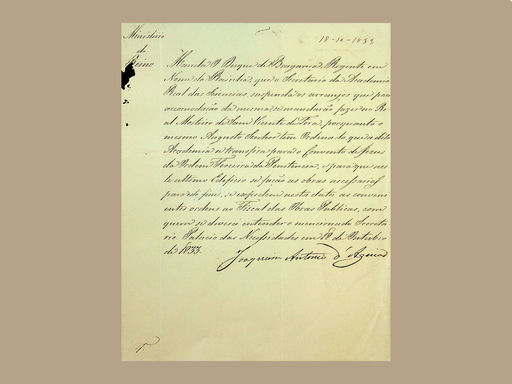 Ministerio
do
Reino
18-10-1833
Manda O Duque de Bragança, Regente em
Nome da Rainha, que o Secretario da Academia
Real das Sciencias, suspenda os arranjos que para
accomodação da mesma se mandarão fazer no Re
al Mosteiro de Sam Vicente de Fora, porquanto o
mesmo Augusto Senhor tem Ordenado que a dita
Academia se transfira para o Convento de Jesus
da Ordem Terceira da Penitencia, e para que nes
te ultimo Edificio se fação as obras necessarias
para este fim, se expedem nesta data as conveni
entes ordens ao Fiscal das Obras Publicas, com
quem se deverá entender o mencionado Secreta
rio. Palacio das Necessidades em 18 de Outubro
de 1833.
Joaquim Antonio d'Aguiar